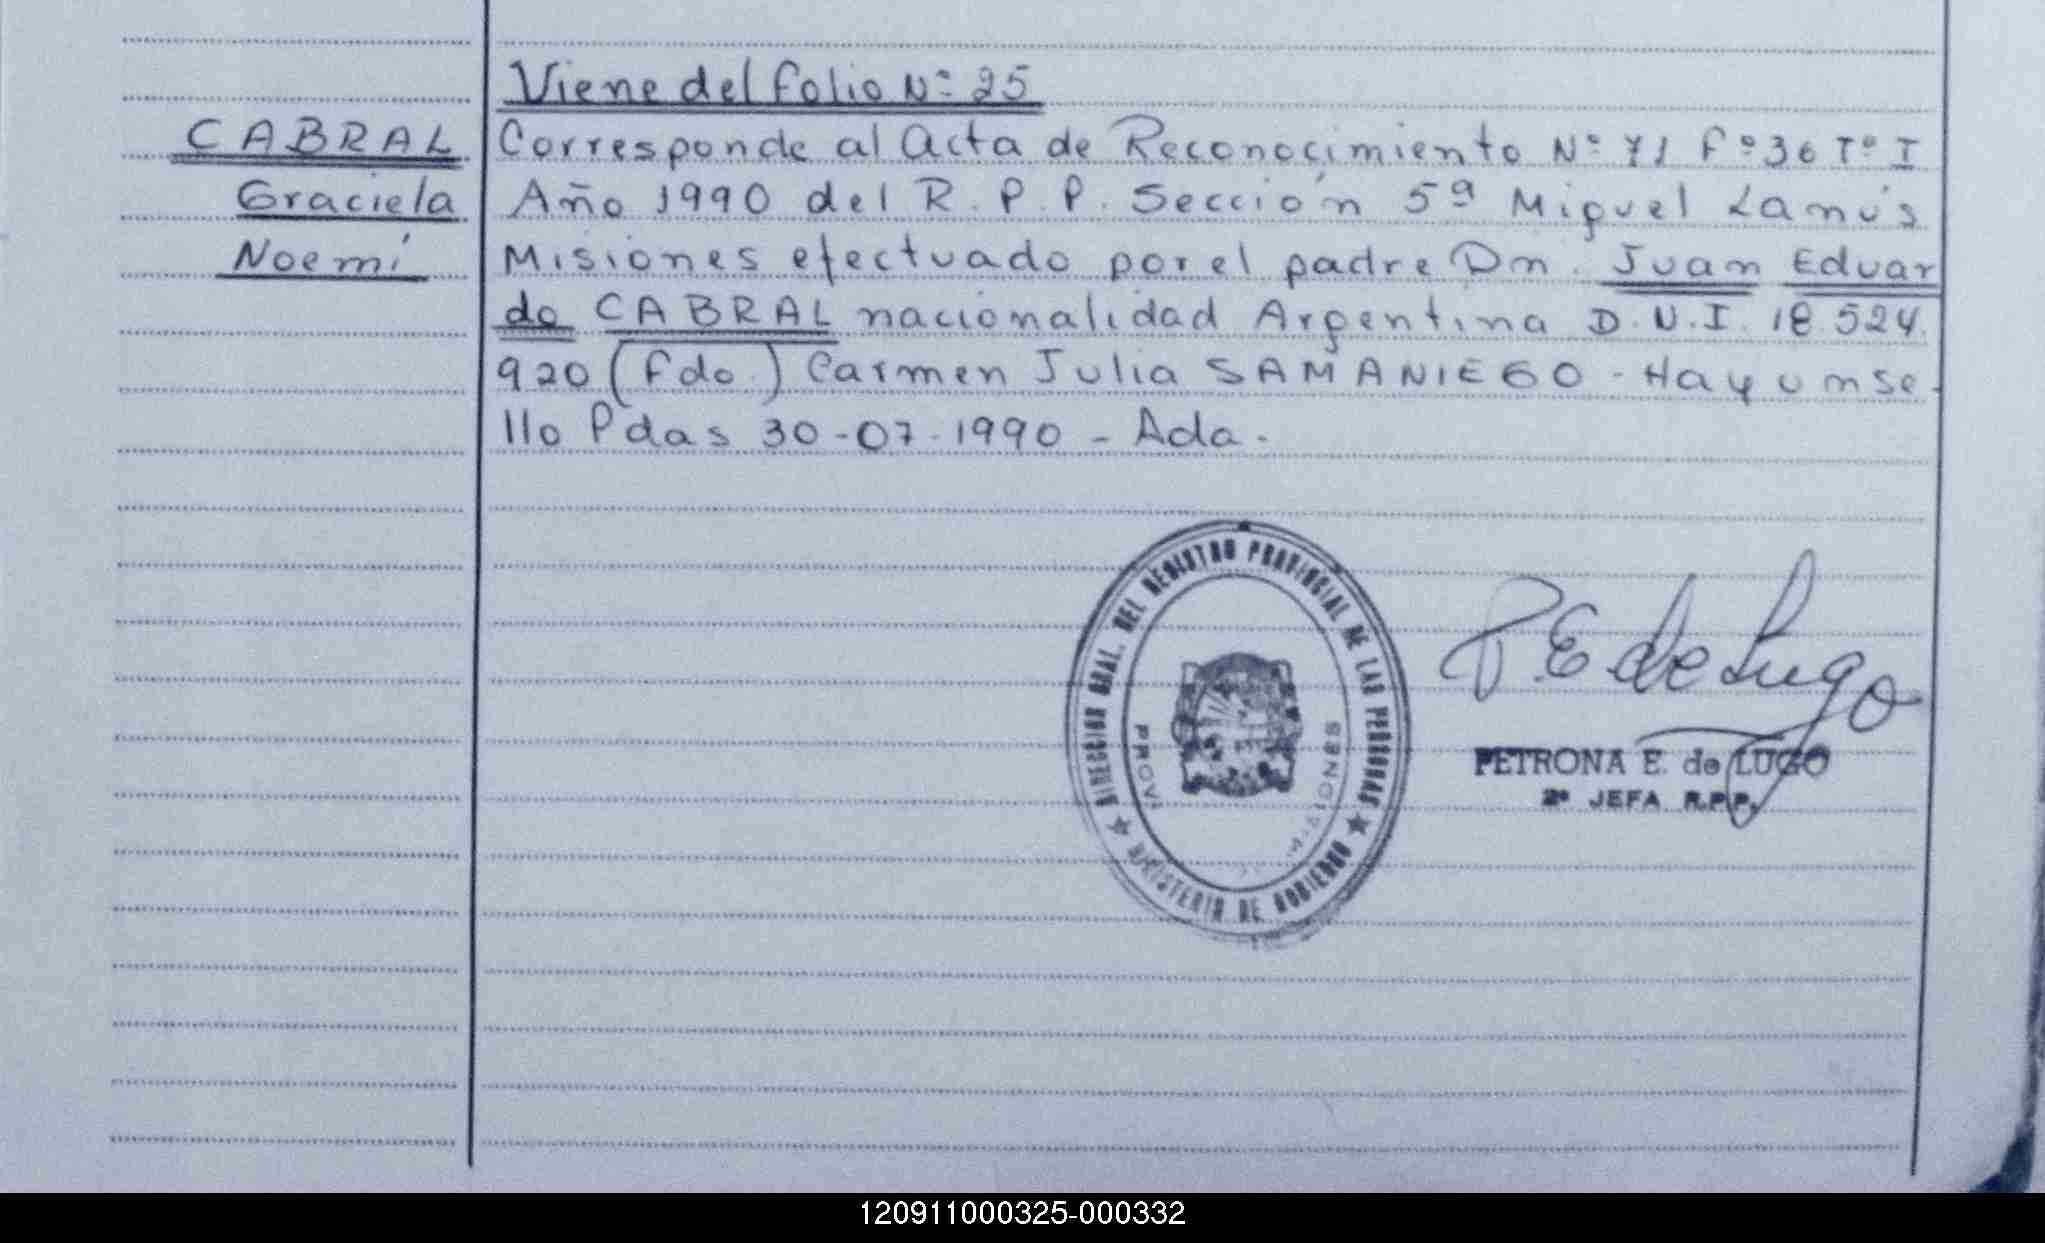 Viene del folio Nº 25
CABRAL
Graciela
Noemí
Corresponde al Acta de Reconocimiento Nº 71 Fº 36 Tº I
Año 1990 del R.P.P. Sección 5ª Miguel Lanús
Misiones efectuado por el padre Dn. Juan Eduar
do CABRAL nacionalidad Argentina D.N.I. 18.524.
920 (Fdo.) Carmen Julia SAMANIEGO - Hay un se-
llo Pdas 30-07-1990 - Ada.
DIRECCION GRAL. DEL REGISTRO PROVINCIAL DE LAS PERSONAS
MINISTERIO DE GOBIERNO
MISIONES
P.E de Lugo
PETRONA E. de LUGO
2º JEFA R.P.P.
120911000325-000332